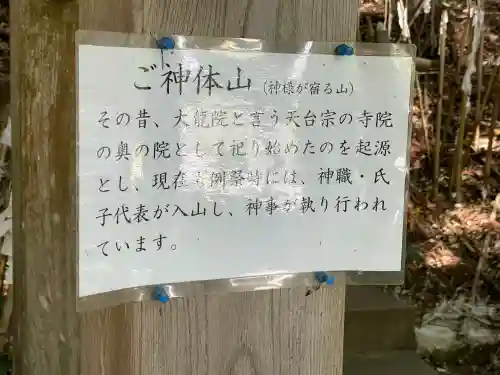 ご神体山（神様が宿る山）
その昔、大龍院と言う天台宗の寺院
の奥の院として祀り始めたのを起源
とし、現在も例祭時には、神職・氏
子代表が入山し、神事が執り行われ
ています。